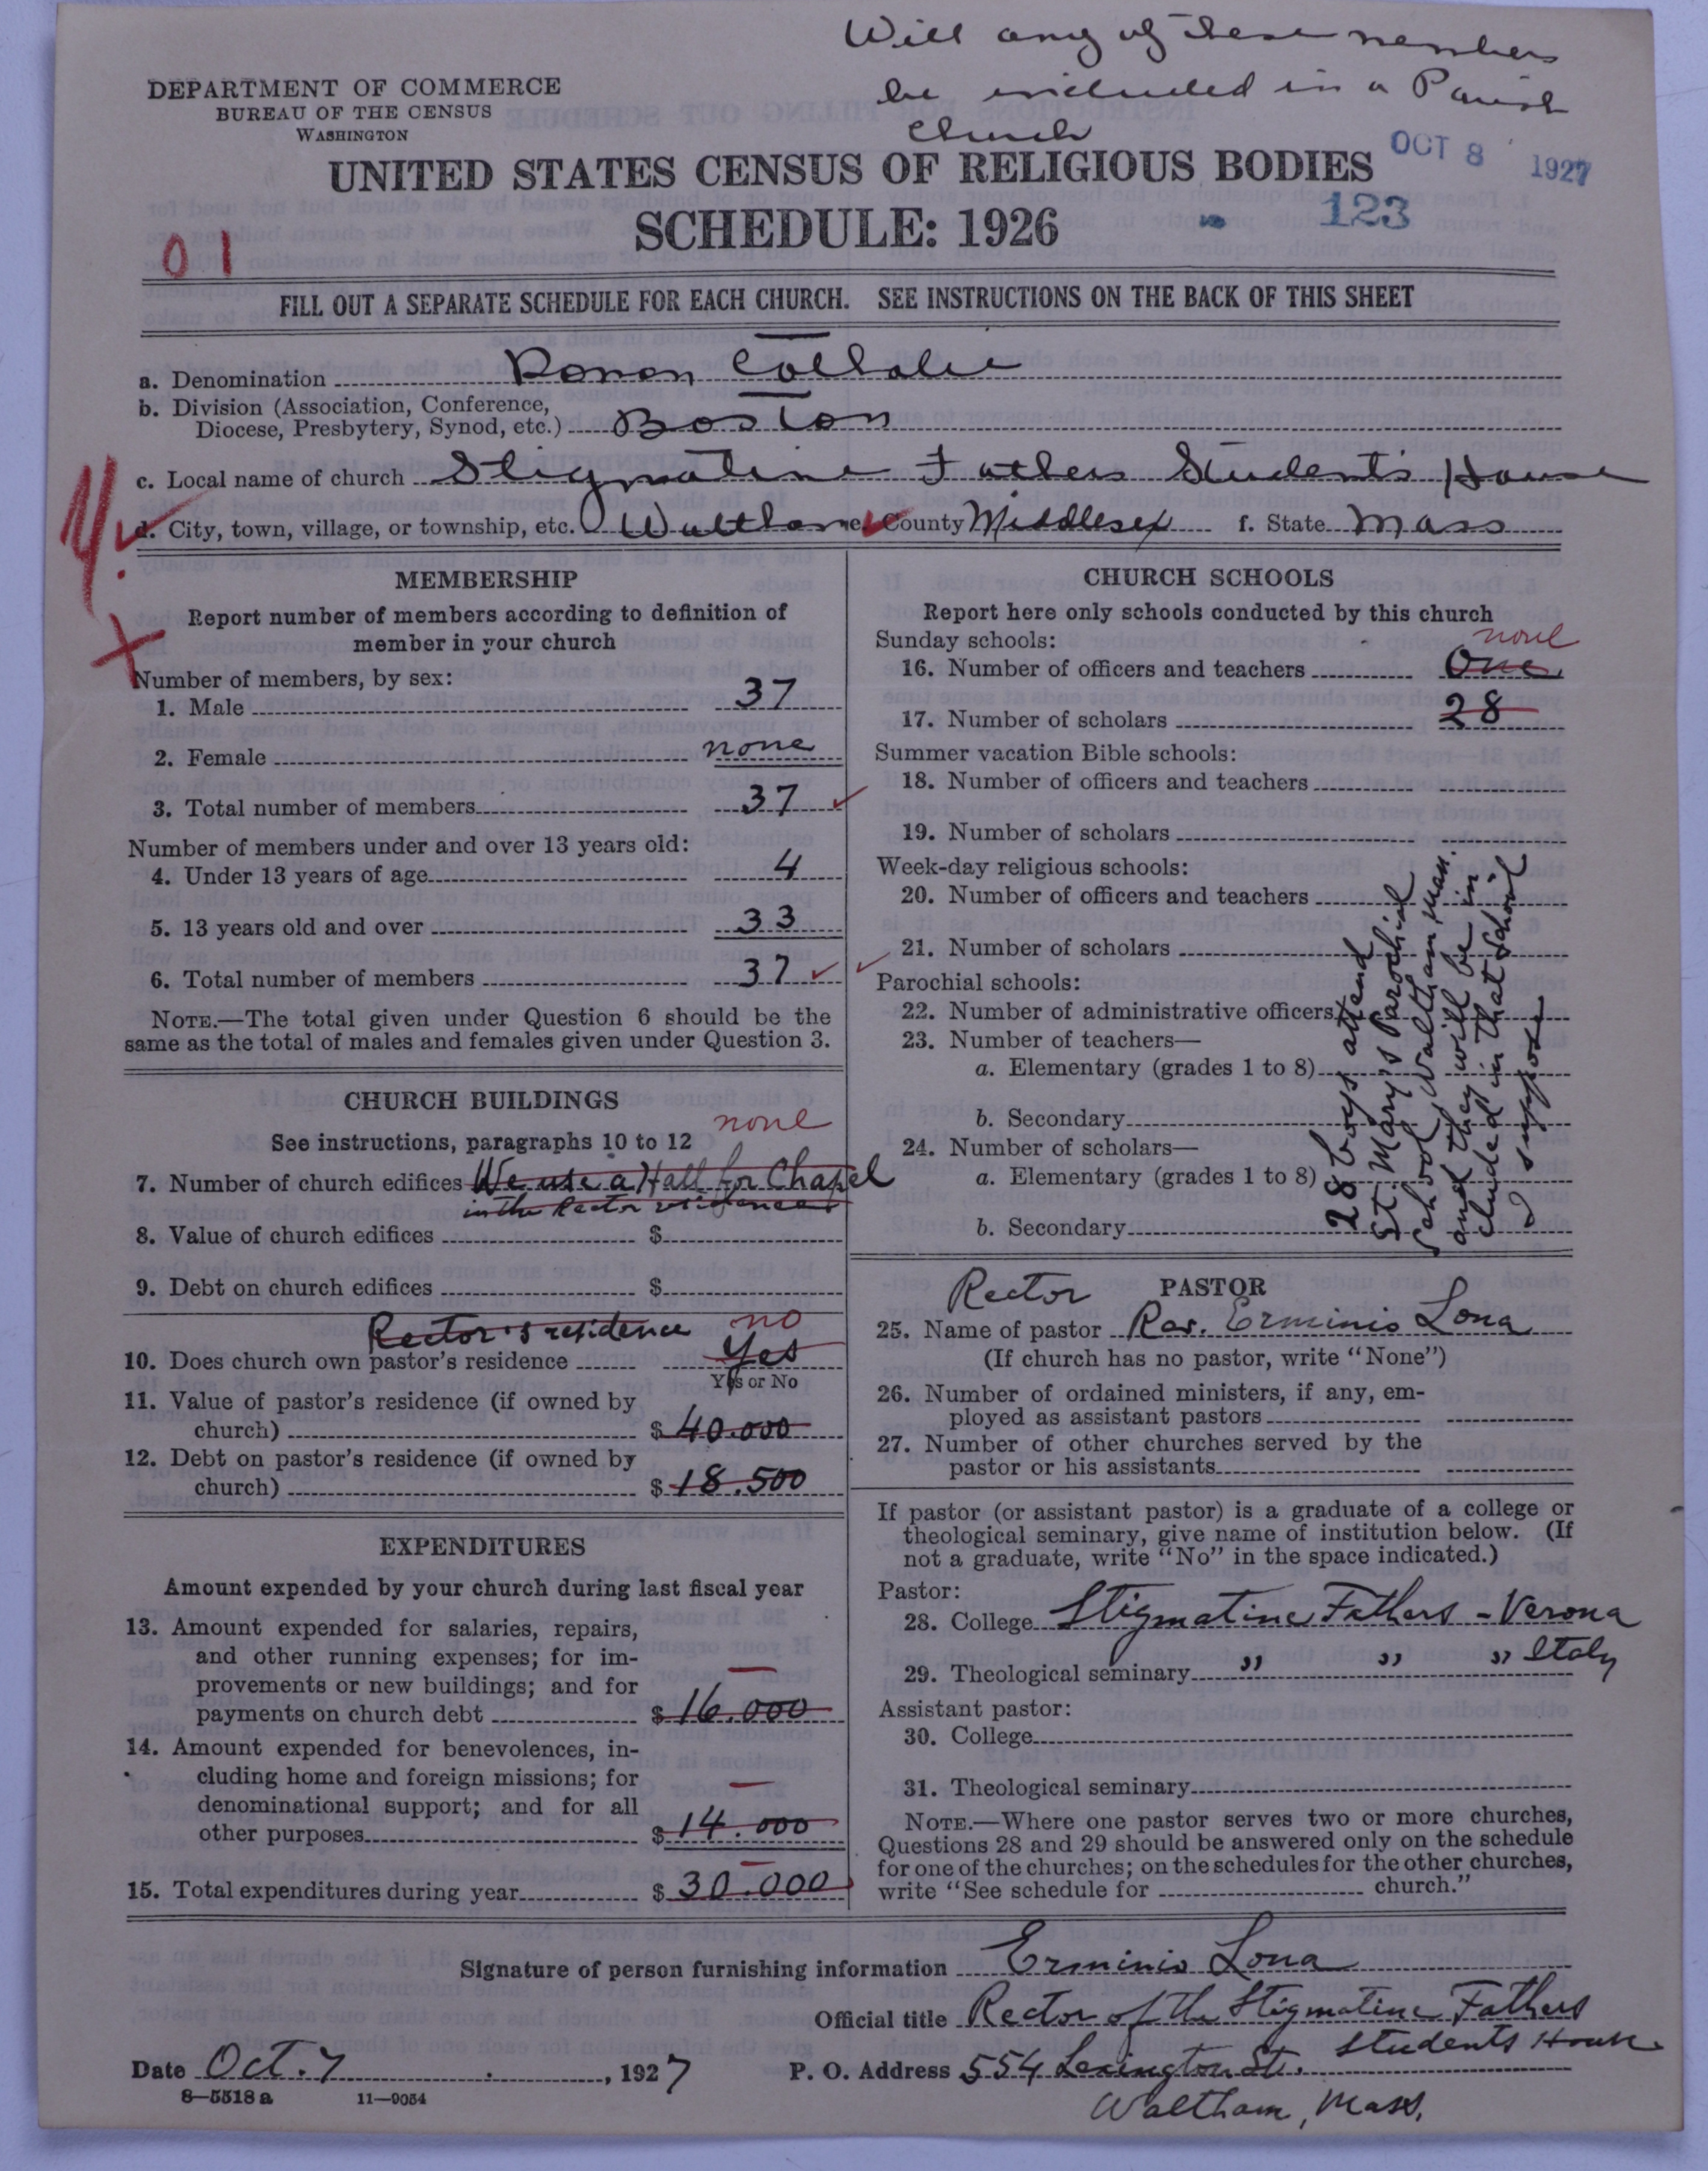 Will any of these members
be included in a Parish
church
DEPARTMENT OF COMMERCE
BUREAU OF THE CENSUS
WASHINGTON
OCT 8 1927
UNITED STATES CENSUS OF RELIGIOUS BODIES
SCHEDULE: 1926
123
01
FILL OUT A SEPARATE SCHEDULE FOR EACH CHURCH. SEE INSTRUCTIONS ON THE BACK OF THIS SHEET
a. Denomination Roman Catholic
b. Division (Association, Conference,
Diocese, Presbytery, Synod, etc.) Boston
c. Local name of church Stigmatine Fathers Student's House
d. City, town, village, or township, etc. Waltham e. County Middlesex f. State Mass
MEMBERSHIP
Report number of members according to definition of
member in your church
Number of members, by sex:
1. Male 37
2. Female none
3. Total number of members 37
Number of members under and over 13 years old:
4. Under 13 years of age 4
5. 13 years old and over 33
6. Total number of members 37
NOTE.—The total given under Question 6 should be the
same as the total of males and females given under Question 3.
CHURCH BUILDINGS
none
See instructions, paragraphs 10 to 12
7. Number of church edifices We use a Hall for Chapel
in the Rector residence
8. Value of church edifices $
9. Debt on church edifices $
Rector's residence no
10. Does church own pastor's residence Yes
Yes or No
11. Value of pastor's residence (if owned by
church) $ 40.000
12. Debt on pastor's residence (if owned by
church) $ 18.500
EXPENDITURES
Amount expended by your church during last fiscal year
13. Amount expended for salaries, repairs,
and other running expenses; for im-
provements or new buildings; and for
payments on church debt $ 16.000
14. Amount expended for benevolences, in-
cluding home and foreign missions; for
denominational support; and for all
other purposes $ 14.000
15. Total expenditures during year $ 30.000
CHURCH SCHOOLS
Report here only schools conducted by this church
Sunday schools:
none
16. Number of officers and teachers One
17. Number of scholars 28
Summer vacation Bible schools:
18. Number of officers and teachers
19. Number of scholars
Week-day religious schools:
20. Number of officers and teachers
21. Number of scholars
Parochial schools:
22. Number of administrative officers
23. Number of teachers—
a. Elementary (grades 1 to 8)
b. Secondary
24. Number of scholars—
a. Elementary (grades 1 to 8)
b. Secondary
28 boys attend
St. Mary's Parochial
School, Waltham Mass.
and they will be in-
cluded in that School
I suppose
Rector PASTOR
25. Name of pastor Rev. Erminio Lona
(If church has no pastor, write "None")
26. Number of ordained ministers, if any, em-
ployed as assistant pastors
27. Number of other churches served by the
pastor or his assistants
If pastor (or assistant pastor) is a graduate of a college or
theological seminary, give name of institution below. (If
not a graduate, write "No" in the space indicated.)
Pastor:
28. College Stigmatine Fathers - Verona
29. Theological seminary " " " Italy
Assistant pastor:
30. College
31. Theological seminary
NOTE.—Where one pastor serves two or more churches,
Questions 28 and 29 should be answered only on the schedule
for one of the churches; on the schedules for the other churches,
write "See schedule for church."
Signature of person furnishing information Erminio Lona
Official title Rector of the Stigmatine Fathers
Students House
Date Oct. 7, 1927
P. O. Address 554 Lexington St.
Waltham, Mass.
8—5518 a 11—9054